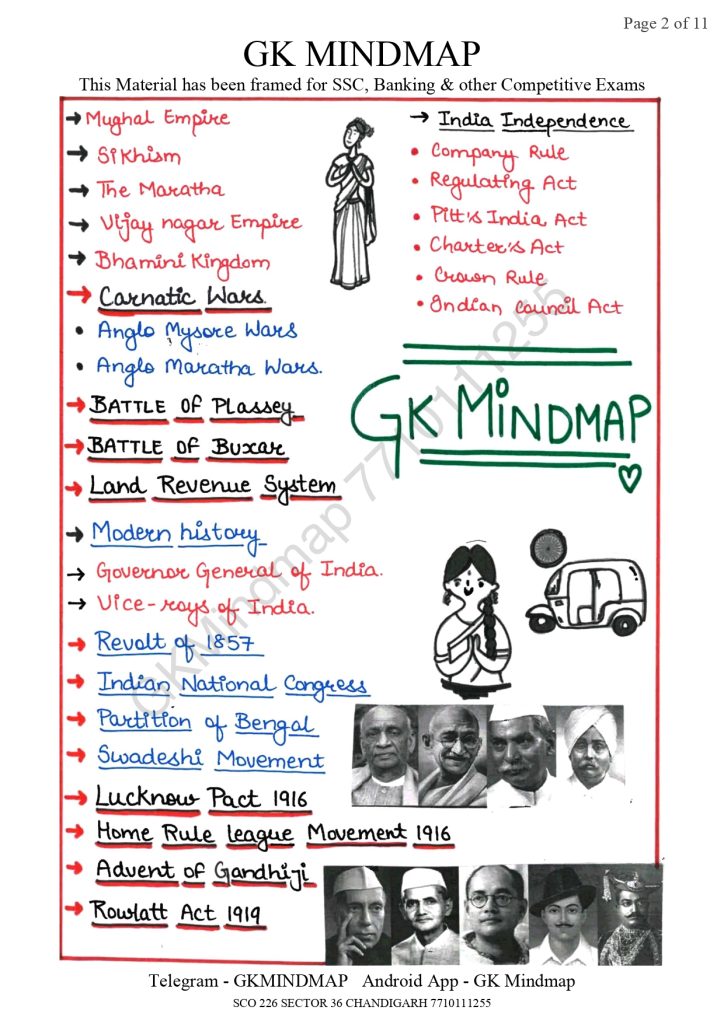 Page 2 of 11
GK MINDMAP
This Material has been framed for SSC, Banking & other Competitive Exams
→ Mughal Empire
→ Sikhism
→ The Maratha
→ Vijay nagar Empire
→ Bhamini Kingdom
→ Carnatic Wars.
• Anglo Mysore Wars
• Anglo Maratha Wars.
→ BATTLE OF Plassey
→ BATTLE OF Buxar
→ Land Revenue System
→ Modern history
→ Governor General of India.
→ Vice-roys of India.
→ Revolt of 1857
→ Indian National Congress
→ Partition of Bengal
→ Swadeshi Movement
→ Lucknow Pact 1916
→ Home Rule league Movement 1916
→ Advent of Gandhiji
→ Rowlatt Act 1919
→ India Independence
• Company Rule
• Regulating Act
• Pitt's India Act
• Charter's Act
• Crown Rule
• Indian Council Act
GK MINDMAP
GKMindmap 7710111255
Telegram - GKMINDMAP Android App - GK Mindmap
SCO 226 SECTOR 36 CHANDIGARH 7710111255